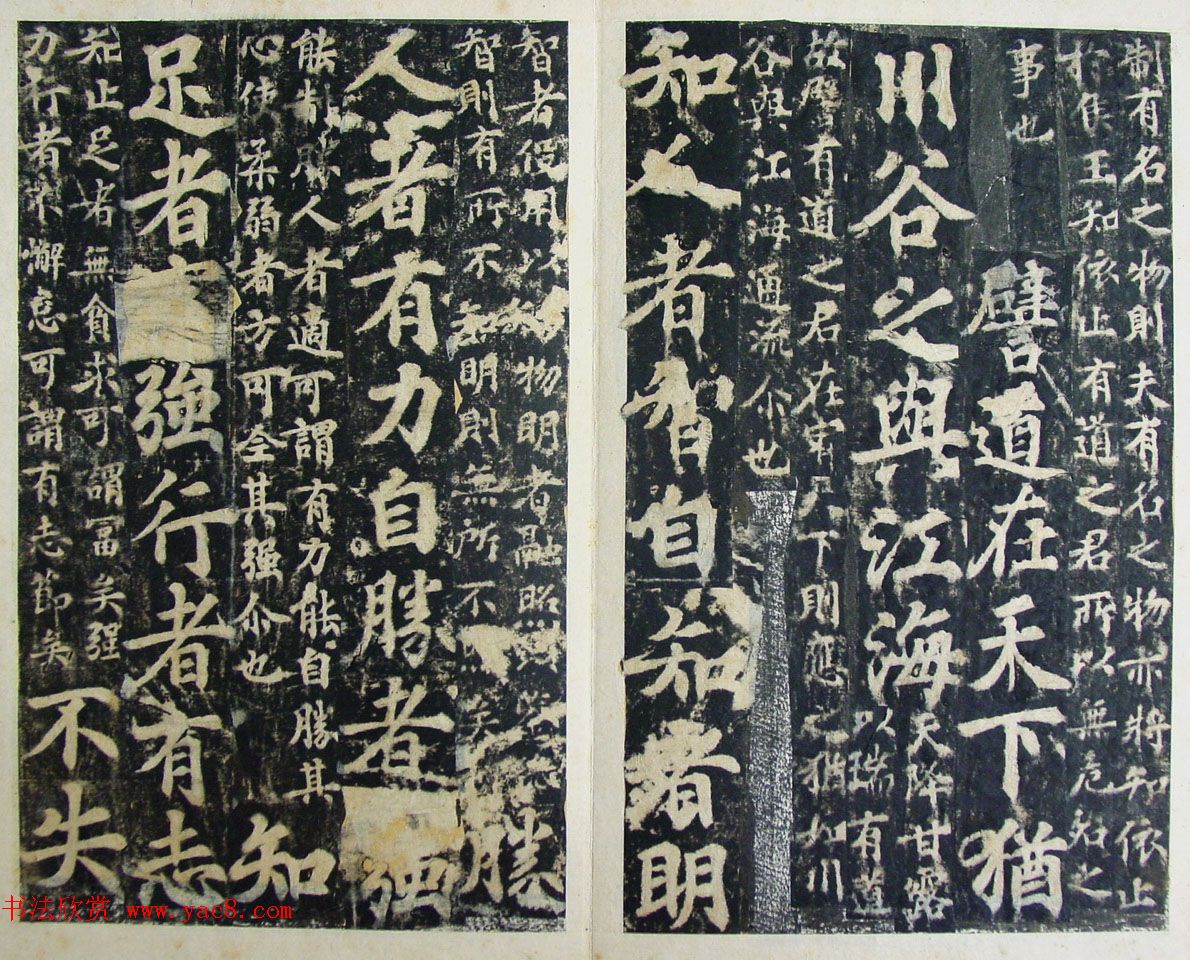 制有名之物則夫有名之物亦將知依止
於侯王知依止有道之君所以無危殆之
事也
譬道在天下猶
川谷之與江海
天降甘露
以瑞有道
故譬有道之君在宥天下則應猶如川
谷與江海通流尒也
知人者智自知者明
智者役用以知物明者融照
智則有所不知明則無所不矣
勝
人者有力自勝者強
能制勝人者適可謂有力能自勝其
心使柔弱者方可全其強尒也
知
足者強行者有志
知止足者無貪求可謂冨矣強
力行者不懈怠可謂有志節矣
不失
书法欣赏 www.yac8.com